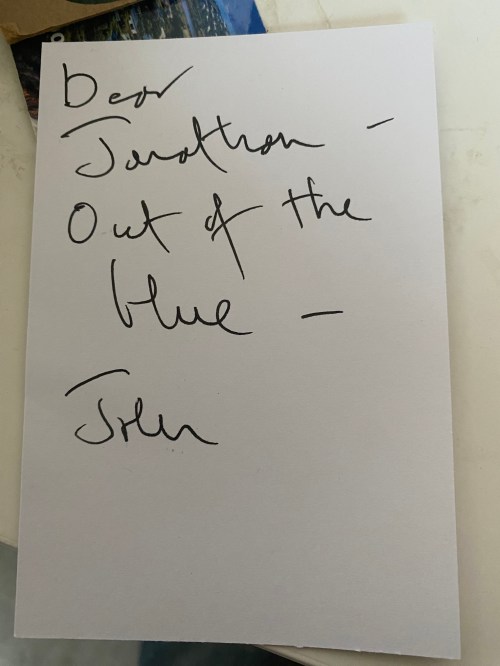 Dear
Jonathan -
Out of the
blue -
John